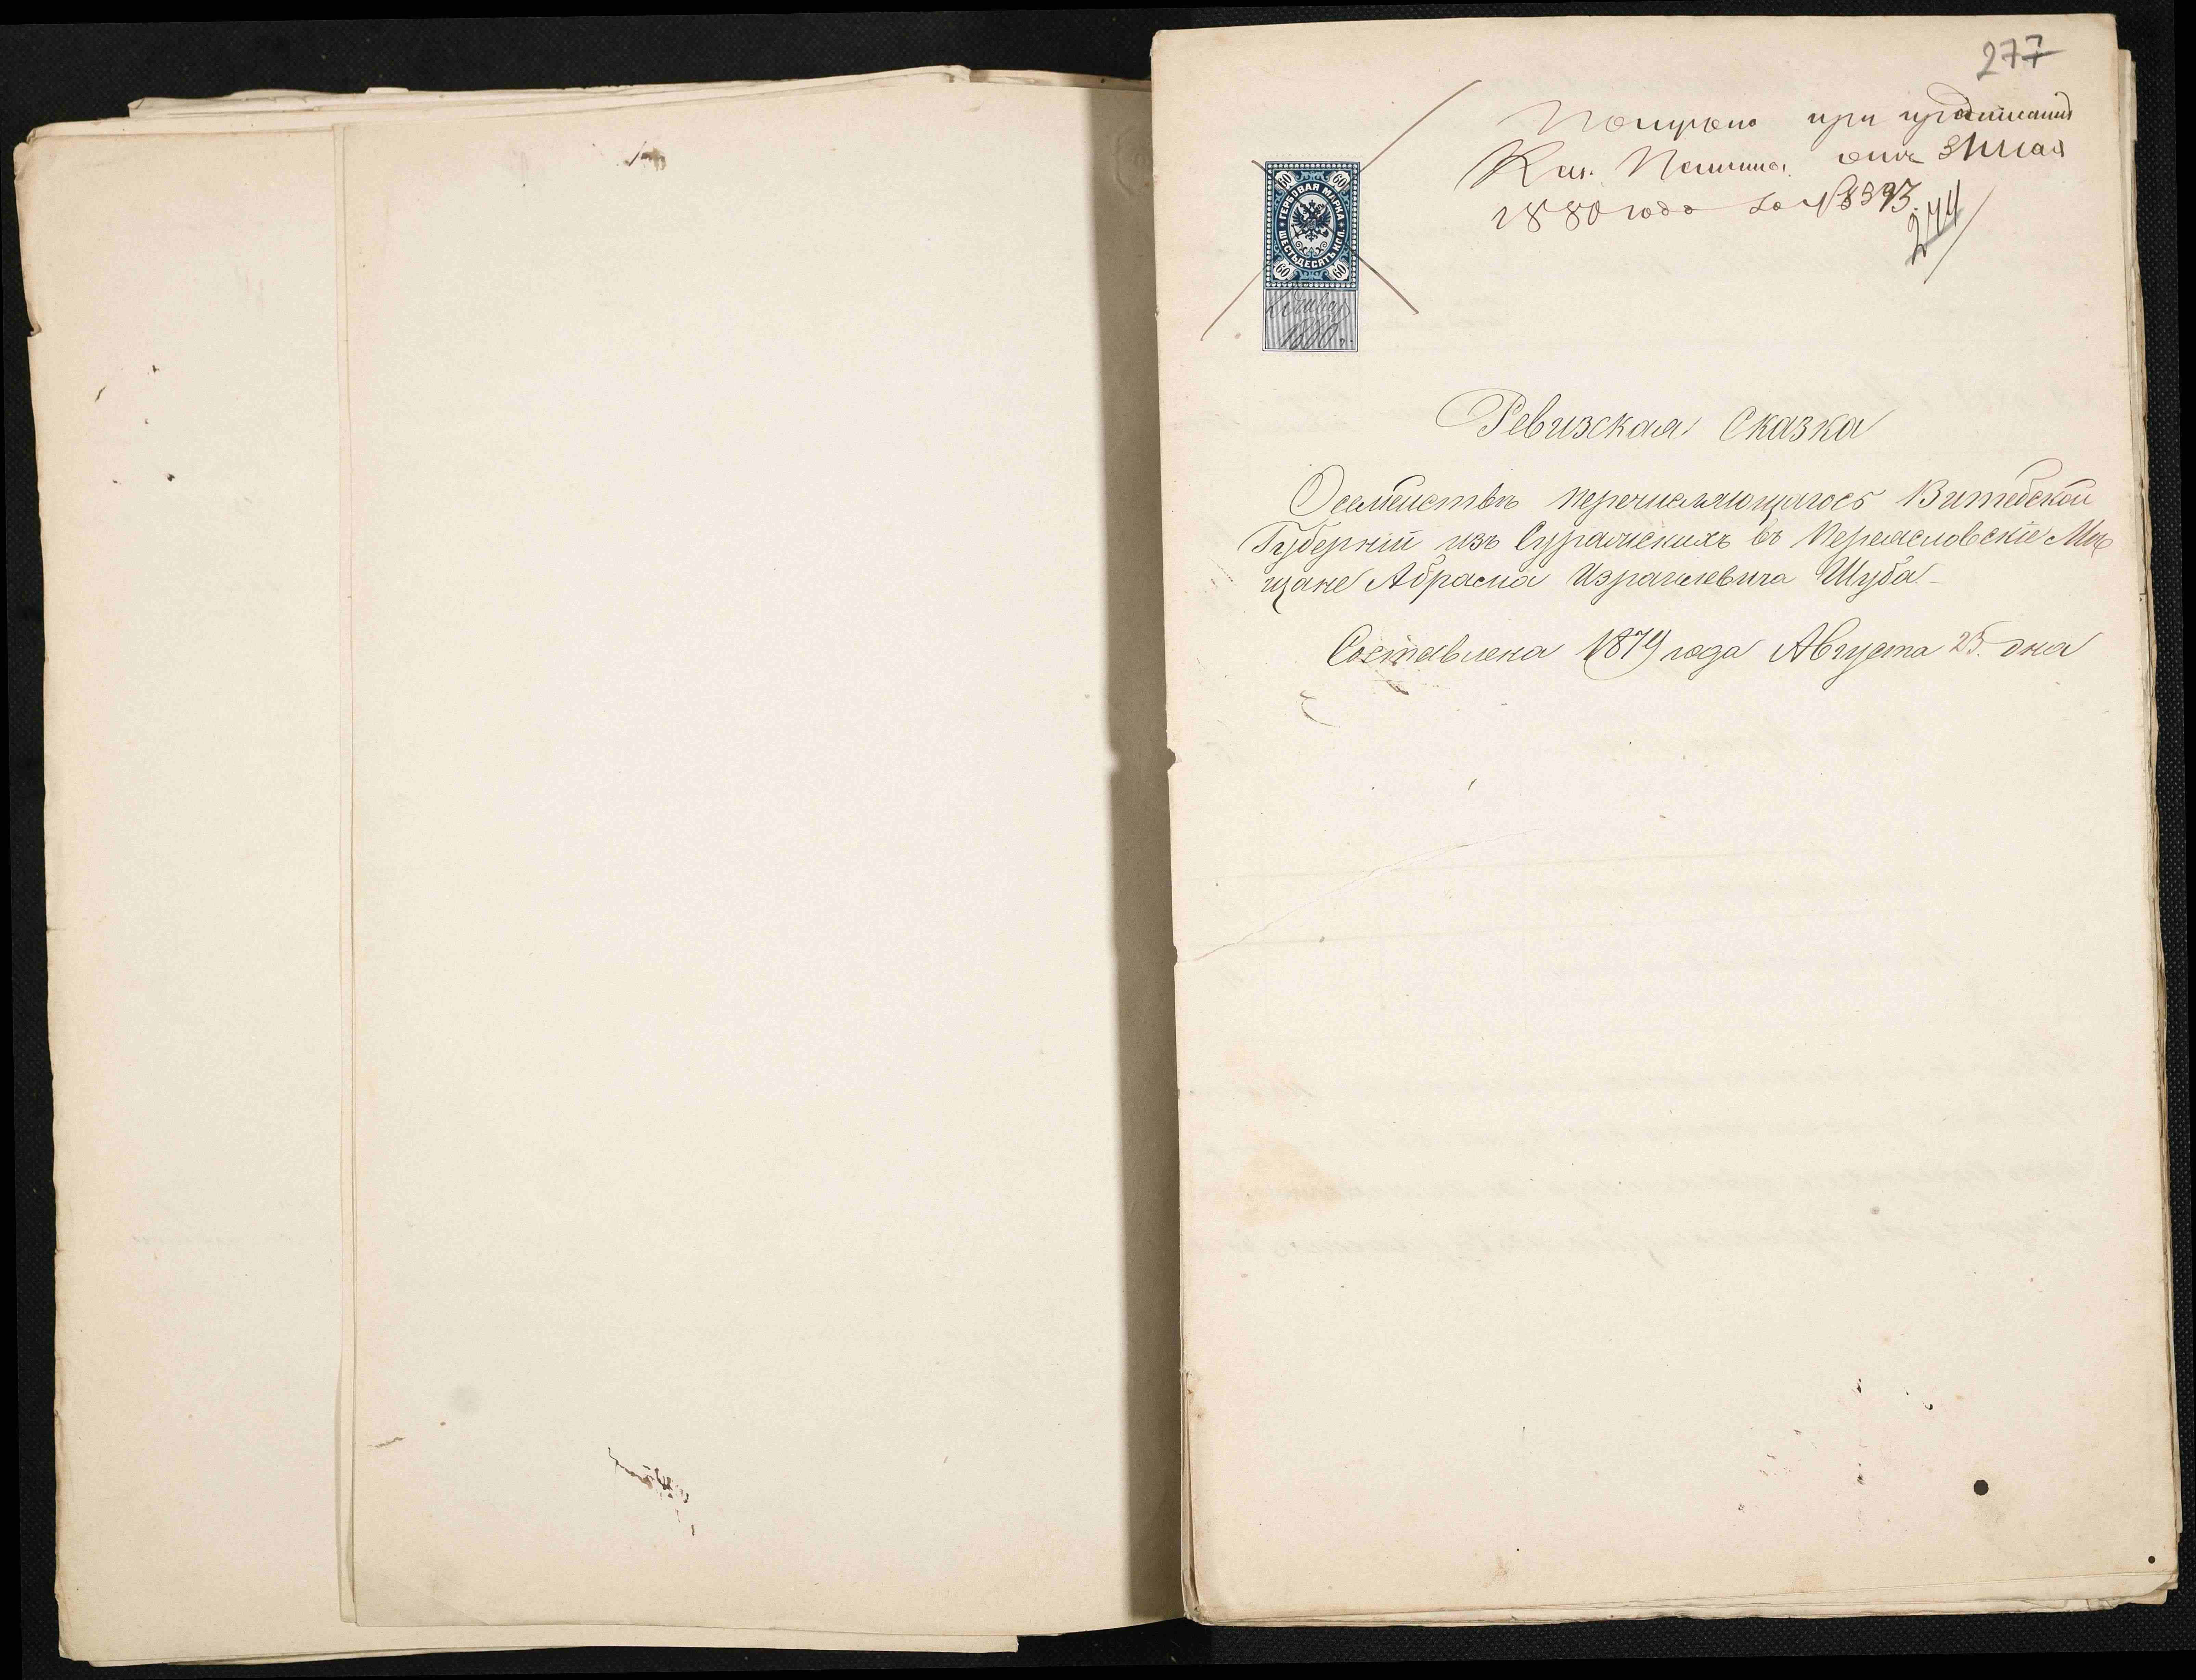 277
при предписании
Каз. Палаты отъ 3 Мая
1880 года за №
274
60 60
ГЕРБОВАЯ МАРКА
ШЕСТЬДЕСЯТЪ КОП.
60 60
1880 г.
Ревизская Сказка
О семействѣ перечисляющагося Витебской
Губерніи изъ Суражскихъ въ Переясловскіе Мѣ
щане Абрама Израилевича Шуба
Составлена 1879 года Августа 25 дня